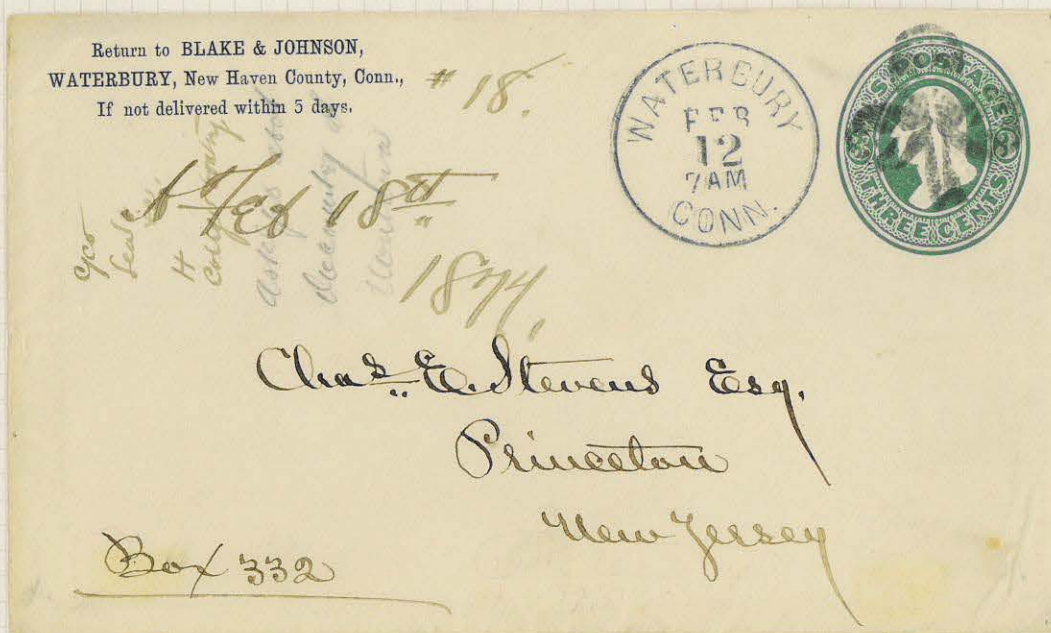 Return to BLAKE & JOHNSON,
WATERBURY, New Haven County, Conn.,
If not delivered within 5 days.
# 18.
WATERBURY
FEB
12
7AM
CONN.
U.S. POSTAGE
3 3
THREE CENTS
Feb 18th
1874,
Chas. E. Stevens Esq.
Princeton
New Jersey
Box 332